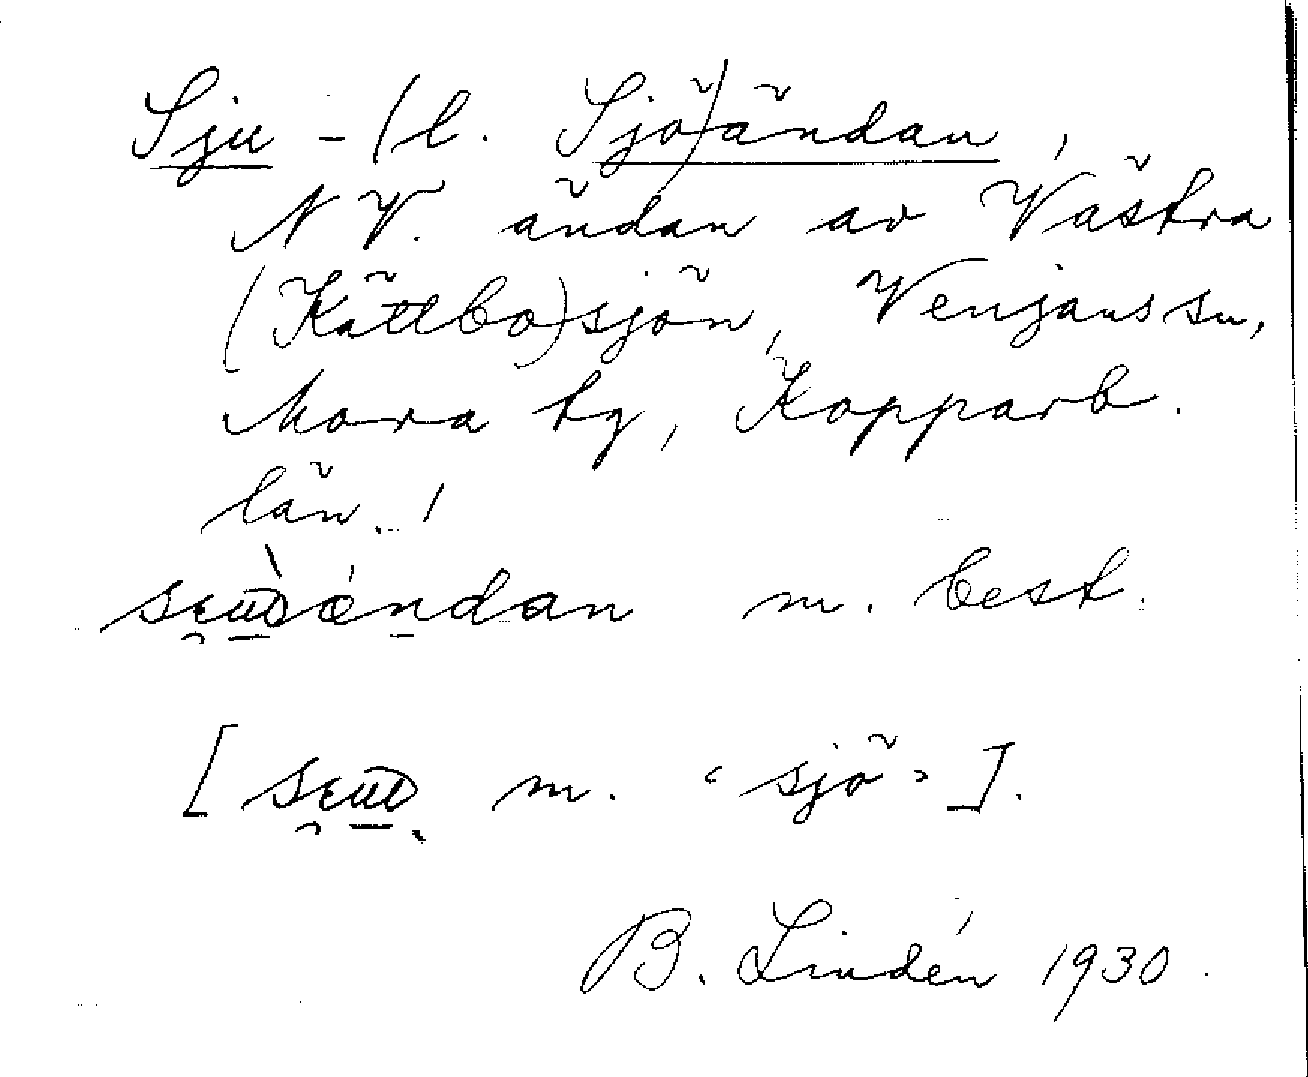 Sju - (l. Sjö)ändan,
N V. ändan av Västra
(Kättbo)sjön, Venjans sn,
Mora tg, Kopparb.
län.
m. best.
[ m. "sjö" ].
B. Lindén 1930